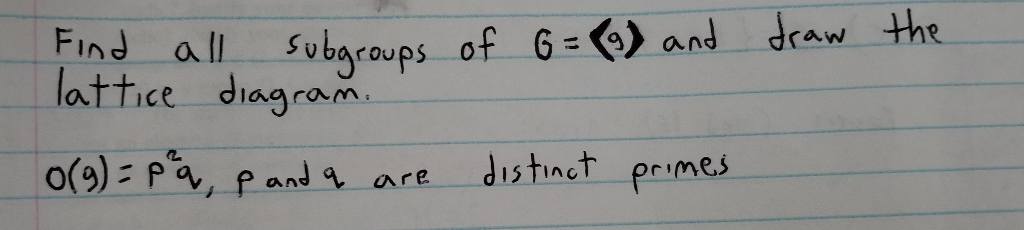 Find all subgroups of G = ⟨g⟩ and draw the
lattice diagram.
o(g) = p²q, p and q are distinct primes